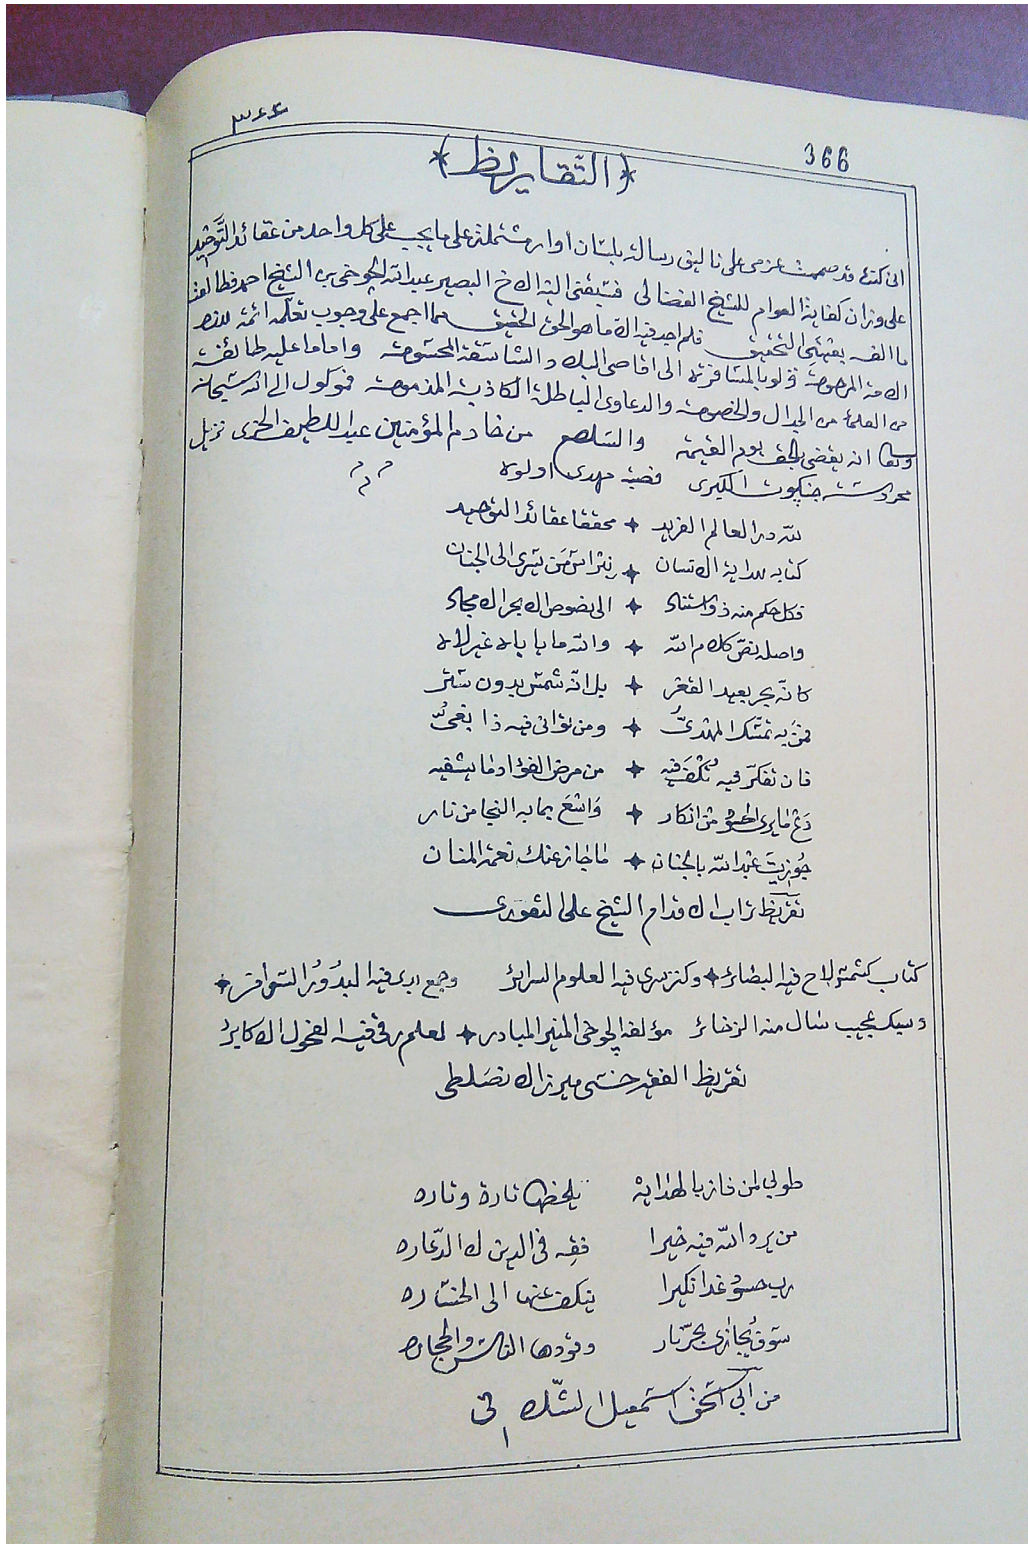 ٣٦٦
366
﴿التقاريظ﴾
انى كنت قد صممت عزمى على تاليف رسالة بلسان اوار مشتملة على ما يجب على كل واحد من عقائد التوحيد
على وزان كفاية العوام للشيخ الفضالى فسبقنى اليه الاخ البصير عبد الله الچوخى بن الشيخ احمد فطالعت
ما الفه بغيتى التحقيق فلم اجد فيه الا ما هو الحق الحقيق مما اجمع على وجوب تعلمه ائمة
الامة المرحومة ولو بالمسافرة الى اقاصى البلاد الشاسعة واما ما عليه طائفة
من العلماء من الجدال والخصومة والدعاوى الباطلة الكاذبة المذمومة فموكول الى الله سبحانه
وتعالى انه يقضى بالحق يوم القيمة والسلام من خادم المؤمنين عبد اللطيف الحزى نزيل
محروسة الكبرى قصبة مهدى اولوه
لله در العالم الفريد ✦ محققا عقائد التوحيد
كتابه هداية الانسان ✦ من يسرى الى الجنان
فكل حكم منه ذو استناد ✦ الى نصوص
واصله نص كلام الله ✦ والله ما ياباه غير لاه
كانه بحر بعيد القعر ✦ بل انه شمس بدون ستر
فمن به تمسك المهتدى ✦ ومن توانى فيه ذا بغى
فان تفكر فيه تكفيه ✦ من مرض الفؤاد ما يشفيه
دع ما يرى الحسود من انكار ✦ واسع بما به النجا من نار
جوزيت عبد الله بالجنان ✦ ما جاز عنك نعمة المنان
تقريظ تراب الاقدام الشيخ على
كتاب كشمس لاح فيه البصائر ✦ وكنز سرى فيه العلوم السرائر وجمع ابدى فيه البدور السوافر ✦
وسبك عجيب سال منه الزخائر مؤلفه الچوخى المنير المبادر ✦ لعلم رقى فيه الفحول الاكابر
تقريظ الفقير ميرزا
طوبى لمن فاز بالهداية يلحظها تارة وتاره
من يرد الله فيه خيرا فقه فى الدين لا الدعاره
رب حسود غدا نكيرا ينكف عنها الى الخساره
سوف يجازى بحر نار وقودها الناس والحجاره
من ابى اسحق اسمعيل